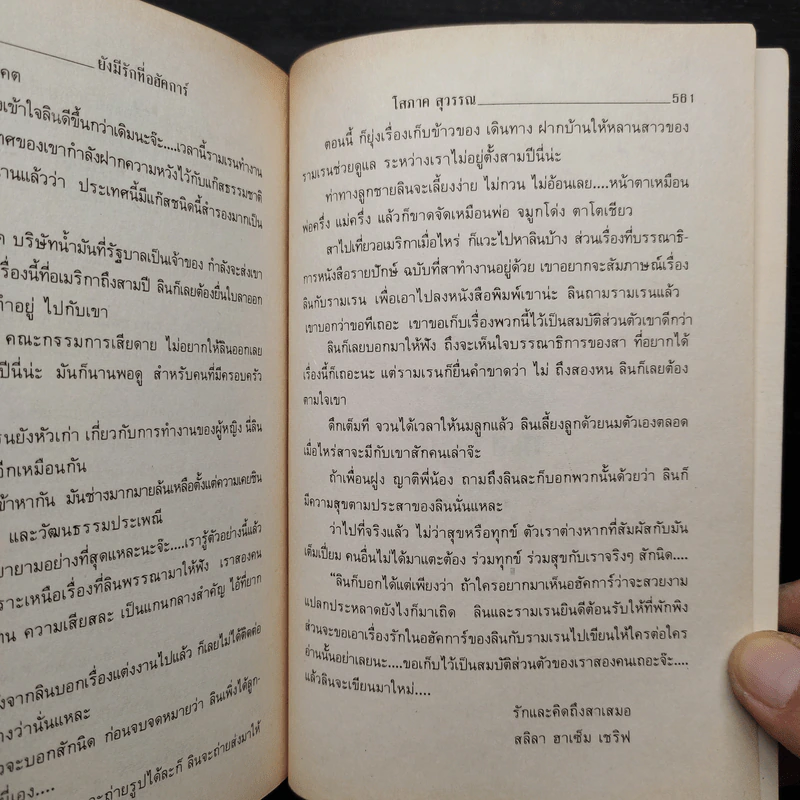 ยังมีรักที่อฮัคการ์
คต
เข้าใจลินดีขึ้นกว่าเดิมนะจ๊ะ....เวลานี้รามเรนทำงาน
ทศของเขากำลังฝากความหวังไว้กับแก๊สธรรมชาติ
านแล้วว่า ประเทศนี้มีแก๊สชนิดนี้สำรองมากเป็น
ค บริษัทน้ำมันที่รัฐบาลเป็นเจ้าของ กำลังจะส่งเขา
รื่องนี้ที่อเมริกาถึงสามปี ลินก็เลยต้องยื่นใบลาออก
ทำอยู่ ไปกับเขา
คณะกรรมการเสียดาย ไม่อยากให้ลินออกเลย
ปีนี่น่ะ มันก็นานพอดู สำหรับคนที่มีครอบครัว
รนยังหัวเก่า เกี่ยวกับการทำงานของผู้หญิง นี่ลิน
อีกเหมือนกัน
ข้าหากัน มันช่างมากมายล้นเหลือตั้งแต่ความเคยชิน
และวัฒนธรรมประเพณี
ยายามอย่างที่สุดแหละนะจ๊ะ....เรารู้ตัวอย่างนี้แล้ว
ราะเหนือเรื่องที่ลินพรรณามาให้ฟัง เราสองคน
าน ความเสียสละ เป็นแกนกลางสำคัญ ไอ้ที่ยาก
ังจากลินบอกเรื่องแต่งงานไปแล้ว ก็เลยไม่ได้ติดต่อ
างว่านั่นแหละ
วจะบอกสักนิด ก่อนจบจดหมายว่า ลินเพิ่งได้ลูก-
นี่เอง....
จะถ่ายรูปได้ละก็ ลินจะถ่ายส่งมาให้
โสภาค สุวรรณ 561
ตอนนี้ ก็ยุ่งเรื่องเก็บข้าวของ เดินทาง ฝากบ้านให้หลานสาวของ
รามเรนช่วยดูแล ระหว่างเราไม่อยู่ตั้งสามปีนี่น่ะ
ท่าทางลูกชายลินจะเลี้ยงง่าย ไม่กวน ไม่อ้อนเลย....หน้าตาเหมือน
พ่อครึ่ง แม่ครึ่ง แล้วก็ขาดจัดเหมือนพ่อ จมูกโด่ง ตาโตเชียว
สาไปเที่ยวอเมริกาเมื่อไหร่ ก็แวะไปหาลินบ้าง ส่วนเรื่องที่บรรณาธิ-
การหนังสือรายปักษ์ ฉบับที่สาทำงานอยู่ด้วย เขาอยากจะสัมภาษณ์เรื่อง
ลินกับรามเรน เพื่อเอาไปลงหนังสือพิมพ์เขาน่ะ ลินถามรามเรนแล้ว
เขาบอกว่าขอทีเถอะ เขาขอเก็บเรื่องพวกนี้ไว้เป็นสมบัติส่วนตัวเขาดีกว่า
ลินก็เลยบอกมาให้ฟัง ถึงจะเห็นใจบรรณาธิการของสา ที่อยากได้
เรื่องนี้ก็เถอะนะ แต่รามเรนก็ยื่นคำขาดว่า ไม่ ถึงสองหน ลินก็เลยต้อง
ตามใจเขา
ดึกเต็มที จวนได้เวลาให้นมลูกแล้ว ลินเลี้ยงลูกด้วยนมตัวเองตลอด
เมื่อไหร่สาจะมีกับเขาสักคนเล่าจ๊ะ
ถ้าเพื่อนฝูง ญาติพี่น้อง ถามถึงลินละก็บอกพวกนั้นด้วยว่า ลินก็
มีความสุขตามประสาของลินนั่นแหละ
ว่าไปที่จริงแล้ว ไม่ว่าสุขหรือทุกข์ ตัวเราต่างหากที่สัมผัสกับมัน
เต็มเปี่ยม คนอื่นไม่ได้มาแตะต้อง ร่วมทุกข์ ร่วมสุขกับเราจริงๆ สักนิด....
“ลินก็บอกได้แต่เพียงว่า ถ้าใครอยากมาเห็นอฮัคการ์ว่าจะสวยงาม
แปลกประหลาดยังไงก็มาเถิด ลินและรามเรนยินดีต้อนรับให้ที่พักพิง
ส่วนจะขอเอาเรื่องรักในอฮัคการ์ของลินกับรามเรนไปเขียนให้ใครต่อใคร
อ่านนั้นอย่าเลยนะ....ขอเก็บไว้เป็นสมบัติส่วนตัวของเราสองคนเถอะจ๊ะ....
แล้วลินจะเขียนมาใหม่....
รักและคิดถึงสาเสมอ
สลิลา ฮาเซ็ม เชริฟ